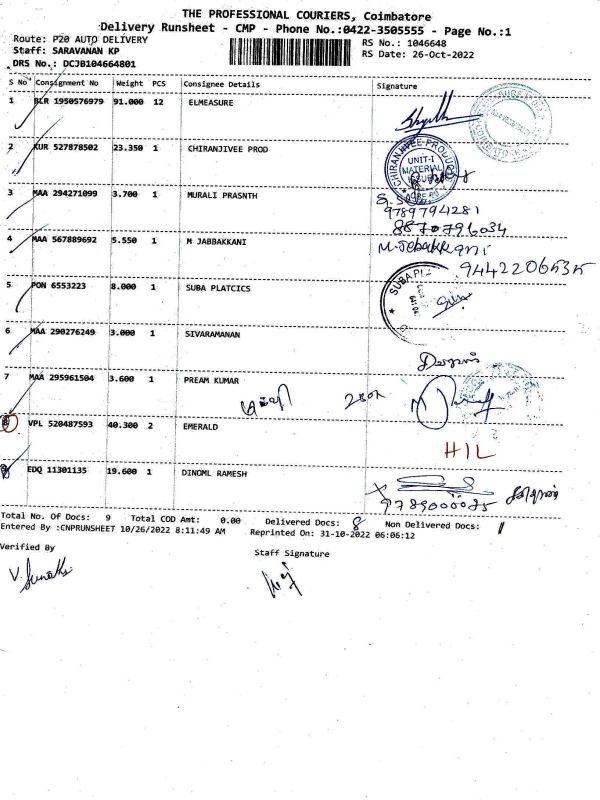 THE PROFESSIONAL COURIERS, Coimbatore
Delivery Runsheet - CMP - Phone No.:0422-3505555 - Page No.:1
Route: P20 AUTO DELIVERY
Staff: SARAVANAN KP
DRS No.: DCJB104664801
RS No.: 1046648
RS Date: 26-Oct-2022
S No Consignment No Weight PCS Consignee Details Signature
1 BLR 1950576979 91.000 12 ELMEASURE
2 KUR 527878502 23.350 1 CHIRANJIVEE PROD
CHIRANJIVEE PRODUCT
UNIT-I
MATERIAL
3 MAA 294271099 3.700 1 MURALI PRASNTH
9789794281
8870796034
4 MAA 567889692 5.550 1 M JABBAKKANI
M.Jebakkani
9442206535
5 PON 6553223 8.000 1 SUBA PLATCICS
SUBA PL
6 MAA 290276249 3.000 1 SIVARAMANAN
7 MAA 295961504 3.600 1 PREAM KUMAR
8 VPL 520487593 40.300 2 EMERALD
HIL
9 EDQ 11301135 19.600 1 DINOML RAMESH
Total No. Of Docs: 9 Total COD Amt: 0.00 Delivered Docs: 8 Non Delivered Docs: 1
Entered By :CNPRUNSHEET 10/26/2022 8:11:49 AM Reprinted On: 31-10-2022 06:06:12
Verified By
Staff Signature